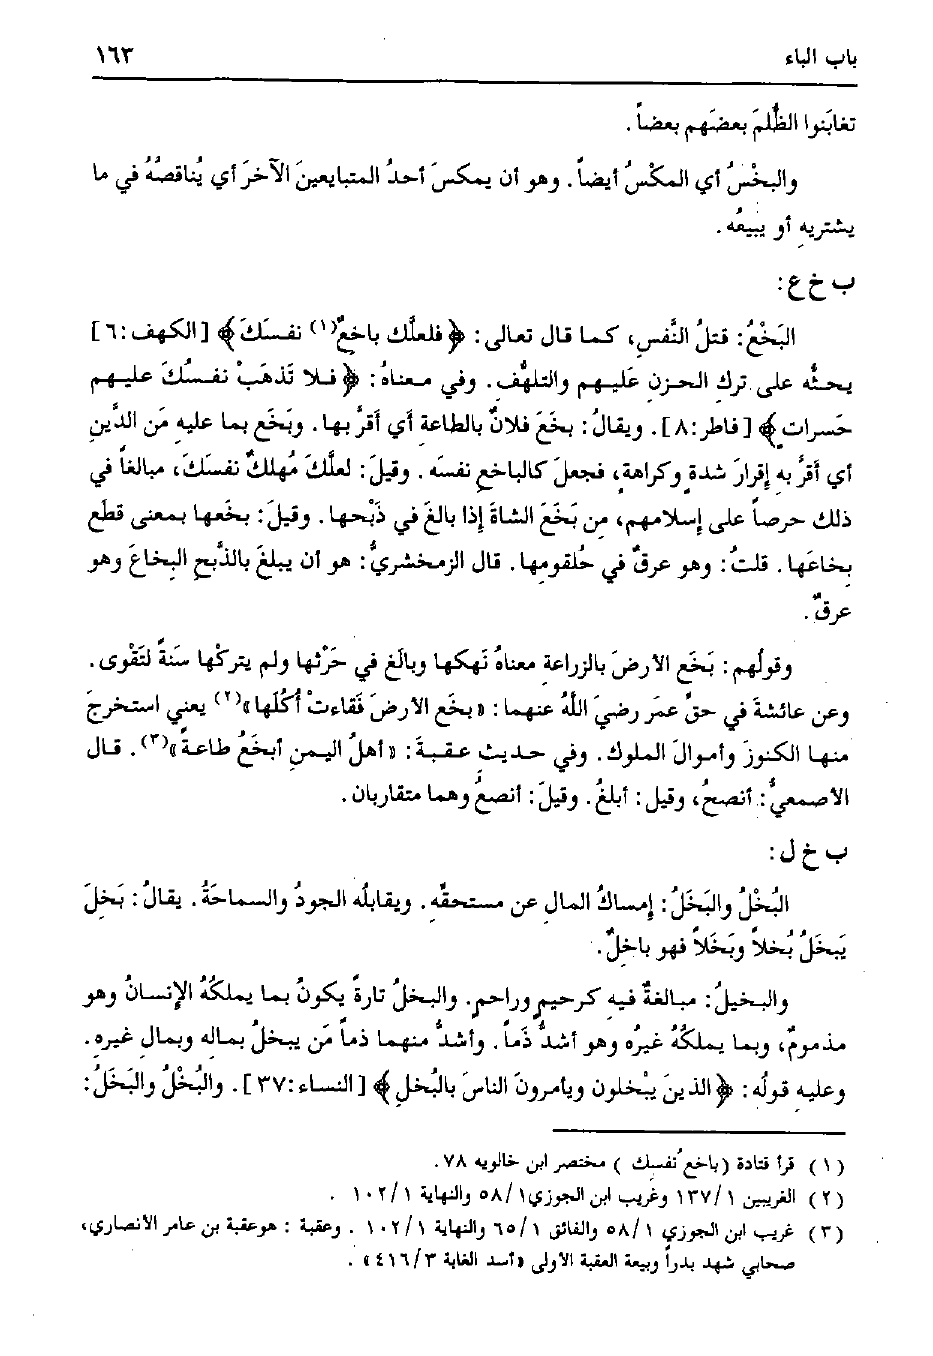 باب الباء ١٦٣
تغابَنوا الظُّلمَ بعضَهم بعضاً .
والبخْسُ أي المكْسُ أيضاً. وهو أن يمكسَ أحدُ المتبايعينَ الآخرَ أي يُناقصُهُ في ما
يشتريهِ أو يبيعُه .
ب خ ع :
البَخْعُ: قتلُ النَّفسِ، كما قال تعالى: ﴿ فلعلَّك باخعٌ(١) نفسَكَ ﴾ [ الكهف: ٦ ]
يحثُّه على تركِ الحزنِ عَليهم والتلهُّف. وفي معناهُ: ﴿ فلا تَذهَبْ نفسُكَ عليهم
حَسراتٍ ﴾ [ فاطر: ٨ ]. ويقالُ: بخَعَ فلانٌ بالطاعةِ أي أقرَّ بها. وبَخَع بما عليهِ مَن الدَّينِ
أي أقرَّ بهِ إقرارَ شدةٍ وكراهةٍ، فجعلَ كالباخعِ نفسَه . وقيلَ: لعلَّكَ مُهلكٌ نفسَكَ، مبالغاً في
ذلك حرصاً على إسلامهم، من بَخَعَ الشاةَ إذا بالغَ في ذَبْحها. وقيلَ: بخعها بمعنى قطَع
بخاعَها . قلتُ: وهو عرقٌ في حُلقومها. قال الزمخشريُّ: هو أن يبلغَ بالذَّبحِ البِخاعَ وهو
عرقٌ .
وقولُهم: بَخَع الأرضَ بالزراعةِ معناهُ نَهكها وبالَغ في حَرْثها ولم يتركْها سَنةً لتَقْوى.
وعن عائشةَ في حقِّ عمَر رضيَ اللهُ عنهما: « بخَع الأرضَ فَقاءتْ أُكُلَها»(٢) يعني استخرجَ
منها الكنوزَ وأموالَ الملوك. وفي حديث عقبةَ: « أهلُ اليمنِ أبخَعُ طاعةً»(٣). قال
الأصمعيُّ: أنصحُ، وقيل: أبلغُ. وقيلَ: أنصعُ وهما متقاربان.
ب خ ل :
البُخْلُ والبَخَلُ: إمساكُ المالِ عن مستحقِّهِ. ويقابلُه الجودُ والسماحةُ. يقالُ: بَخِلَ
يَبخَلُ بُخلاً وبَخَلاً فهو باخِلٌ.
والبخيلُ: مبالغةٌ فيه كرحيمٍ وراحمٍ. والبخلُ تارةً يكونُ بما يملكُهُ الإنسانُ وهو
مذمومٌ، وبما يملكُهُ غيرُه وهو أشدُّ ذَماً. وأشدُّ منهما ذماً مَن يبخلُ بمالهِ وبمالِ غيرهِ.
وعليهِ قولُه: ﴿ الذينَ يبْخلون ويأمرونَ الناسَ بالبُخلِ ﴾ [ النساء: ٣٧ ]. والبُخْلُ والبَخَلُ:
(١) قرأ قتادة ( باخعُ نفسِك ) مختصر ابن خالويه ٧٨.
(٢) الغريبين ١/ ١٣٧ وغريب ابن الجوزي١ / ٥٨ والنهاية ١ / ١٠٢ .
(٣) غريب ابن الجوزي ١ / ٥٨ والفائق ١ / ٦٥ والنهاية ١ / ١٠٢ . وعقبة : هوعقبة بن عامر الأنصاري،
صحابي شهد بدراً وبيعة العقبة الأولى «أسد الغابة ٣ / ٤١٦» .